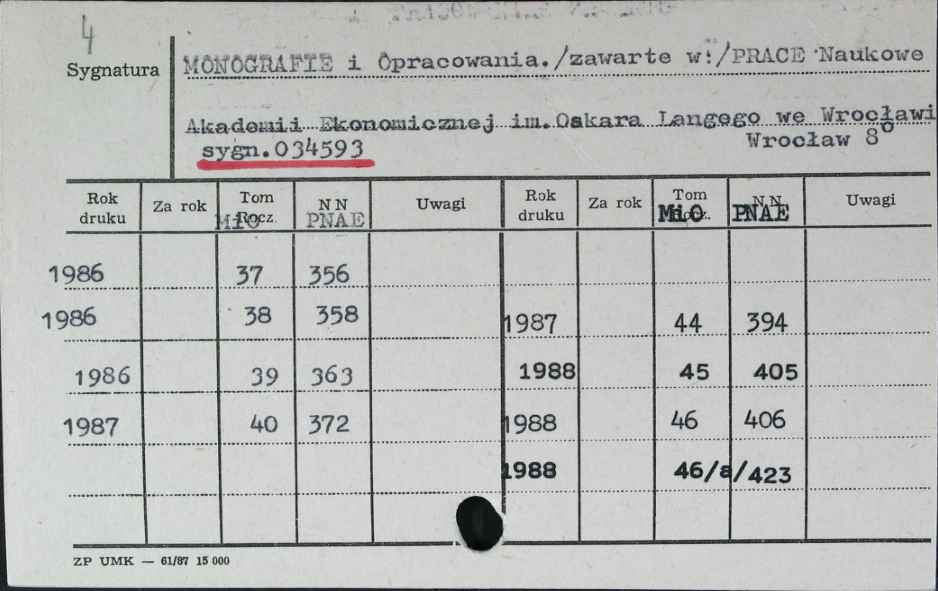 4
Sygnatura
MONOGRAFIE i Opracowania./zawarte w:/PRACE Naukowe
Akademii Ekonomicznej im.Oskara Langego we Wrocławi
sygn.034593 Wrocław 8°
Rok druku Za rok Tom Rocz. MiO NN PNAE Uwagi Rok druku Za rok Tom Rocz. MiO NN PNAE Uwagi
1986 37 356
1986 38 358 1987 44 394
1986 39 363 1988 45 405
1987 40 372 1988 46 406
1988 46/a/423
ZP UMK — 61/87 15 000